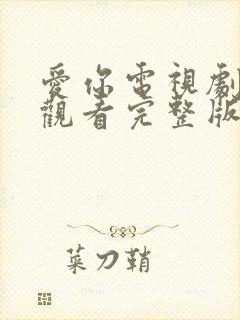 愛你電視劇
觀看完整版
菜刀鞘